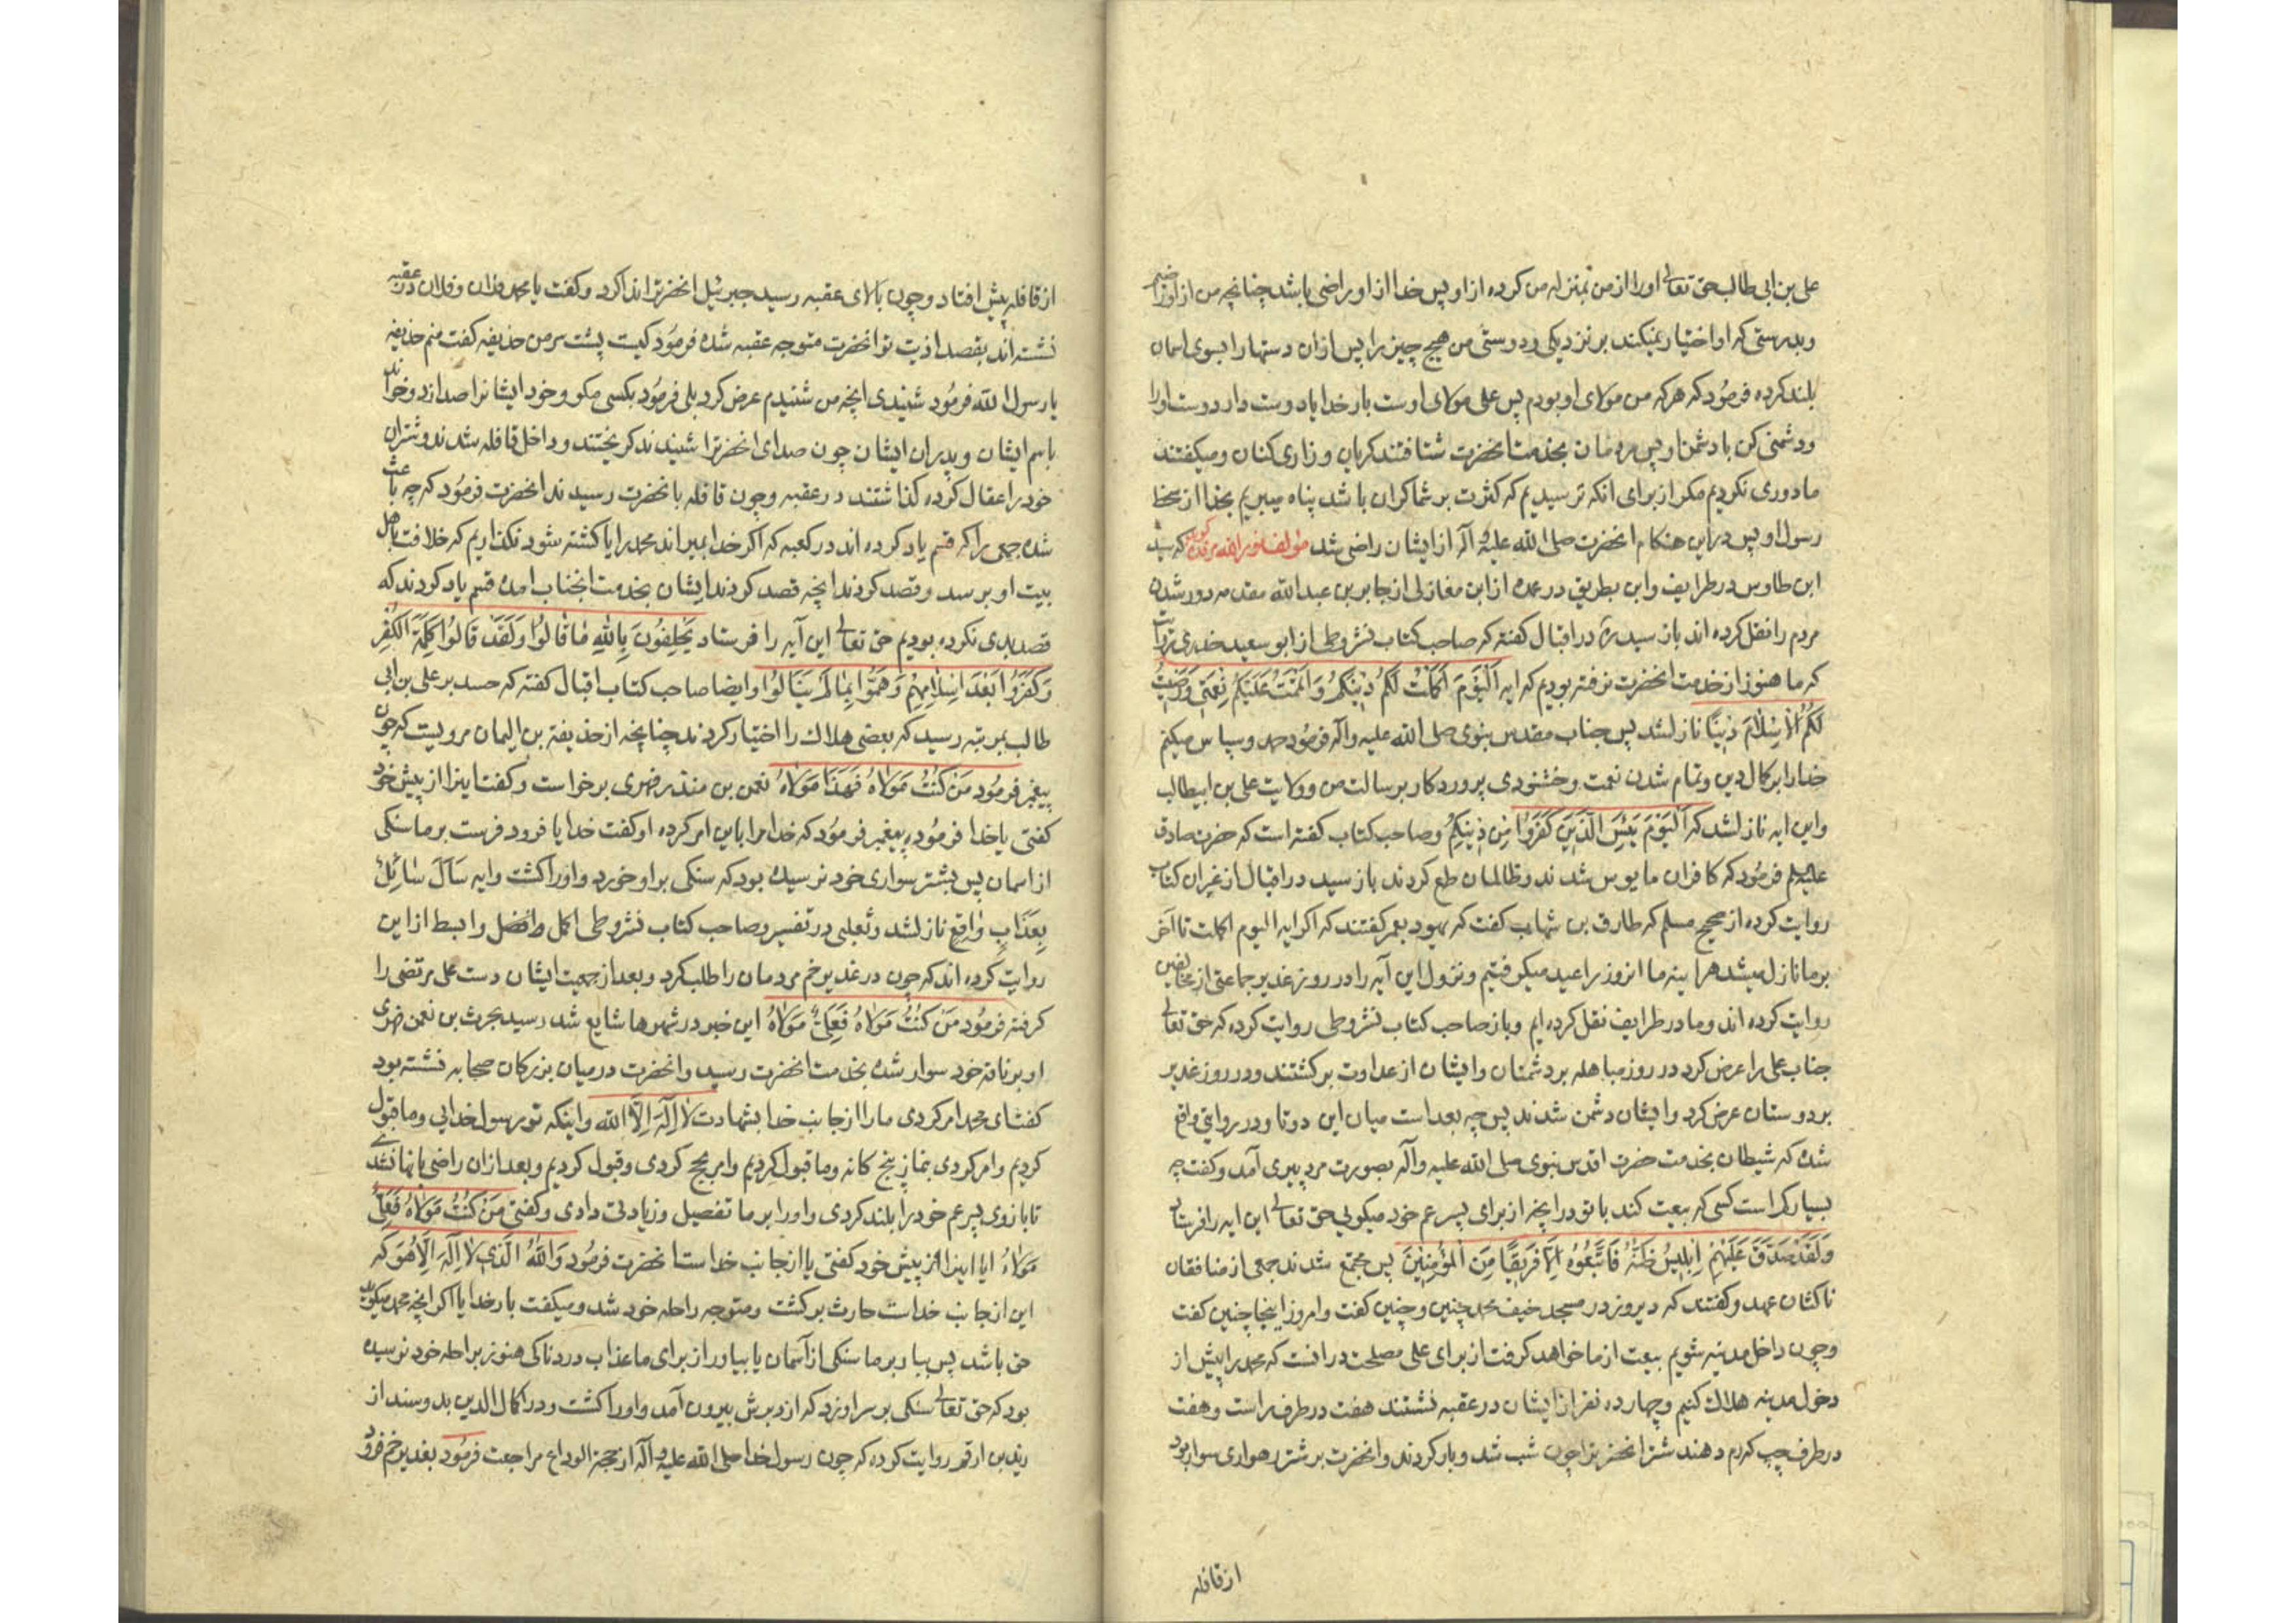 علی بن ابی طالب حق تعالی او را از من بمنزله من کرده از او پس خدا از او راضی باشد چنانچه من از او راضیم
وبدرستی که او اختیار نمیکند بر نزدیکی و دوستی من هیچ چیز را پس ازان دستها را بسوی اسمان
بلند کرده فرمود که هر که من مولای او بودم پس علی مولای اوست بار خدایا دوست دار دوست او را
ودشمنی کن با دشمن او پس مردمان بخدمت انحضرت شتافتند کریان و زاری کنان ومیکفتند
ما دوری نکردیم مکر از برای انکه ترسیدیم که کثرت بر شما کران باشد پناه میبریم بخدا از سخط
رسول او پس دراین هنکام انحضرت صلی الله علیه وآله از ایشان راضی شد مولف نور الله مرقده کوید که سید
ابن طاوس در طرایف وابن بطریق در عمده از ابن مغازلی از جابر بن عبدالله مقدمه دور شدن
مردم را نقل کرده اند باز سید ره در اقبال کفته که صاحب کتاب نشر وطی از ابو سعید خدری
که ما هنوز از خدمت انحضرت نرفته بودیم که ایه اَلْیَوْمَ اَکْمَلْتُ لَکُمْ دِینَکُمْ وَاَتْمَمْتُ عَلَیْکُمْ نِعْمَتِی وَرَضِیتُ
لَکُمُ الْاِسْلَامَ دِینًا نازلشد پس جناب مقدس نبوی صلی الله علیه وآله فرمود حمد وسپاس میکنم
خدا را بر کمال دین وتمام شدن نعمت وخشنودی پروردکار برسالت من وولایت علی بن ابیطالب
واین ایه نازلشد که اَلْیَوْمَ یَئِسَ الَّذِینَ کَفَرُوا مِنْ دِینِکُمْ وصاحب کتاب کفته است که حضرت صادق
علیه السلم فرمود که کافران مایوس شدند وظالمان طمع کردند باز سید در اقبال از غیر ان کتاب
روایت کرده از صحیح مسلم که طارق بن شهاب کفت که یهود بعمر کفتند که اکر ایه الیوم اکملت تا آخر
بر ما نازل میشد هراینه ما انروز را عید میکرفتیم ونزول این آیه را در روز غدیر جماعتی از مخالفین
روایت کرده اند وما در طرایف نقل کرده ایم وباز صاحب کتاب نشر وطی روایت کرده که حق تعالی
جناب علی را عرض کرد در روز مباهله بر دشمنان وایشان از عداوت برکشتند ودر روز غدیر
بر دوستان عرض کرد وایشان دشمن شدند پس چه بعد است میان این دوتا ودر روایتی واقع
شده که شیطان بخدمت حضرت اقدس نبوی صلی الله علیه وآله بصورت مرد پیری آمد وکفت چه
بسیار کم است کسی که بیعت کند با تو در انچه از برای پسر عم خود میکویی حق تعالی این ایه را فرستاد
وَلَقَدْ صَدَّقَ عَلَیْهِمْ اِبْلِیسُ ظَنَّهُ فَاتَّبَعُوهُ اِلَّا فَرِیقًا مِنَ الْمُؤْمِنِینَ پس مجتمع شدند جمعی از منافقان
ناکثان عهد وکفتند که دیروز در مسجد خیف محمد چنین وچنین کفت وامروز اینجا چنین کفت
وچون داخل مدینه شویم بیعت از ما خواهد کرفت از برای علی مصلحت در انست که محمد را پیش از
دخول مدینه هلاک کنیم وچهارده نفر از ایشان در عقبه نشستند هفت در طرف راست وهفت
در طرف چپ که رم دهند شتر انحضرت را چون شب شد وبار کردند وانحضرت بر شتر رهواری سوار بود
از قافله
از قافله پیش افتاد وچون بالای عقبه رسید جبرئیل انحضرترا ندا کرد وکفت یا محمد فلان وفلان در عقبه
نشسته اند بقصد اذیت تو انحضرت متوجه عقبه شده فرمود کیست پشت سر من حذیفه کفت منم حذیفه
یا رسول الله فرمود شنیدی انچه من شنیدم عرض کرد بلی فرمود بکسی مکو وخود ایشانرا صدا زد وخواند
باسم ایشان وپدران ایشان چون صدای انحضرترا شنیدند کریختند وداخل قافله شدند وشتران
خود را عقال کرده کذاشتند در عقبه وچون قافله بانحضرت رسیدند انحضرت فرمود که چه باعث
شده جمعی را که قسم یاد کرده اند در کعبه که اکر خدا بمیراند محمد را یا کشته شود نکذاریم که خلافت باهل
بیت او برسد وقصد کردند انچه قصد کردند ایشان بخدمت انجناب امده قسم یاد کردند که
قصد بدی نکرده بودیم حق تعالی این آیه را فرستاد یَحْلِفُونَ بِاللّٰهِ مَا قَالُوا وَلَقَدْ قَالُوا کَلِمَةَ الْکُفْرِ
وَکَفَرُوا بَعْدَ اِسْلَامِهِمْ وَهَمُّوا بِمَا لَمْ یَنَالُوا وایضا صاحب کتاب اقبال کفته که حسد بر علی بن ابی
طالب بمرتبه رسید که بعضی هلاک را اختیار کردند چنانچه از حذیفة بن الیمان مرویست که چون
پیغمبر فرمود مَنْ کُنْتُ مَوْلَاهُ فَهَذَا مَوْلَاهُ نعمن بن منذر فهری برخواست وکفت اینرا از پیش خود
کفتی یا خدا فرموده پیغمبر فرمود که خدا مرا باین امر کرده او کفت خدایا فرود فرست بر ما سنکی
از اسمان پس بشتر سواری خود نرسیده بود که سنکی بر او خورد واورا کشت وایه سَاَلَ سَائِلٌ
بِعَذَابٍ وَاقِعٍ نازلشد وثعلبی در تفسیر وصاحب کتاب نشر وطی اکمل وافضل وابسط از این
روایت کرده اند که چون در غدیر خم مردمان را طلب کرد وبعد از جمعیت ایشان دست علی مرتضی را
کرفته فرمود مَنْ کُنْتُ مَوْلَاهُ فَعَلِیٌّ مَوْلَاهُ این خبر در شهرها شایع شد رسید بحرث بن نعمن فهری
او بر ناقه خود سوار شده بخدمت انحضرت رسید وانحضرت در میان بزرکان صحابه نشسته بود
کفت ای محمد امر کردی ما را از جانب خدا بشهادت لَا اِلٰهَ اِلَّا الله واینکه تو رسول خدایی وما قبول
کردیم وامر کردی بنماز پنج کانه وما قبول کردیم وامر بحج کردی وقبول کردیم وبعد ازان راضی بانها نشدی
تا بازوی پسر عم خود را بلند کردی واورا بر ما تفصیل وزیادتی دادی وکفتی مَنْ کُنْتُ مَوْلَاهُ فَعَلِیٌّ
مَوْلَاهُ ایا اینرا از پیش خود کفتی یا از جانب خداست انحضرت فرمود وَاللّٰهُ الَّذِی لَا اِلٰهَ اِلَّا هُوَ که
این از جانب خداست حارث برکشت ومتوجه راحله خود شد ومیکفت بار خدایا اکر انچه محمد میکوید
حق باشد پس ببار بر ما سنکی از آسمان یا بیاور از برای ما عذاب دردناکی هنوز براحله خود نرسیده
بود که حق تعالی سنکی بر سر او زد که از دبرش بیرون آمد واورا کشت ودر اکمال الدین بدو سند از
زید بن ارقم روایت کرده که چون رسول خدا صلی الله علیه وآله از حجة الوداع مراجعت فرمود بغدیر خم فرود